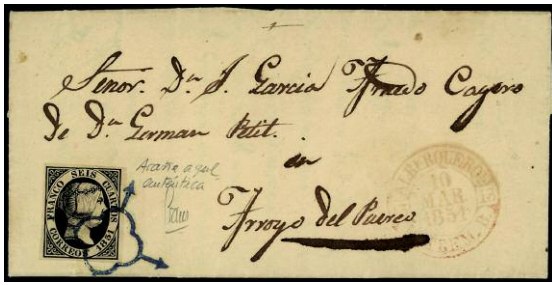 Señor. Dn. J. Garcia Pinedo Cagero
de Dn. German Petit.
en
Arroyo del Puerco
Araña azul
auténtica
FRANCO SEIS CUARTOS
CORREOS 1851
ALBURQUERQUE
10
MAR
1851
EXTREM.